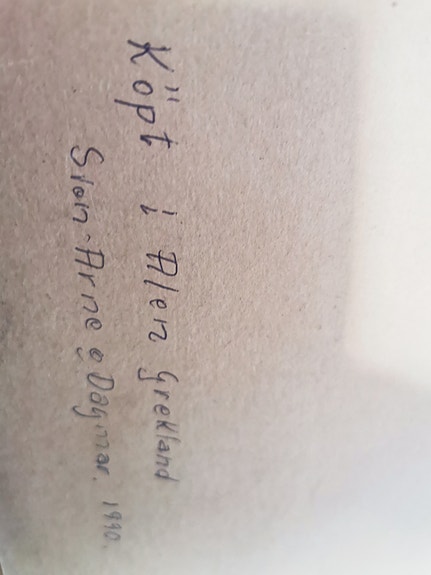 Köpt i Aten Grekland
Sion-Arne o Dagmar. 1990.